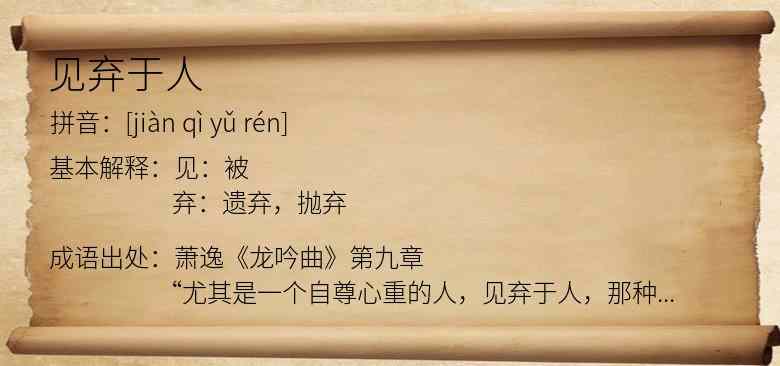 见弃于人
拼音：[jiàn qì yǔ rén]
基本解释：见：被
弃：遗弃，抛弃
成语出处：萧逸《龙吟曲》第九章
“尤其是一个自尊心重的人，见弃于人，那种...